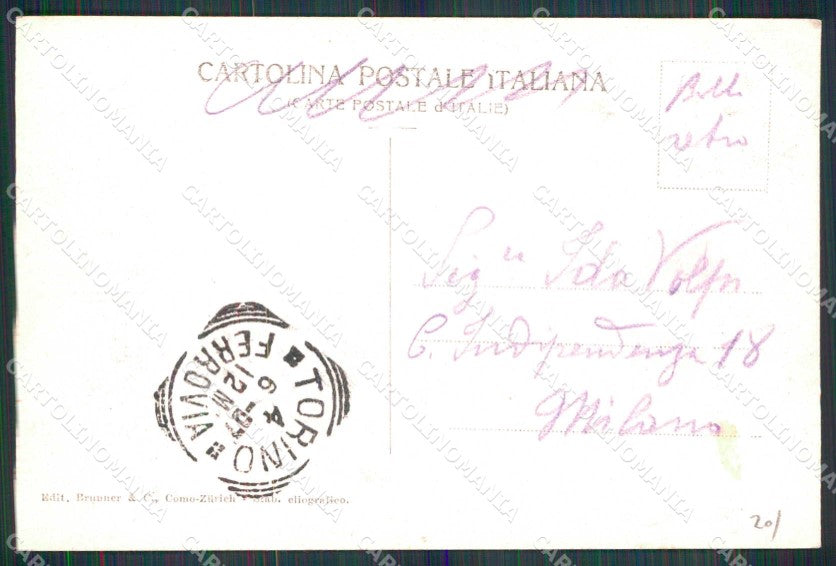 CARTOLINA POSTALE ITALIANA
(CARTE POSTALE d'ITALIE)
Bolli
retro
Sig.na Ida Volpi
C. Indipendenza 18
Milano
TORINO FERROVIA
6 4 07
12 M
Edit. Brunner & C., Como-Zürich - Stab. eliografico.
20/
CARTOLINOMANIA